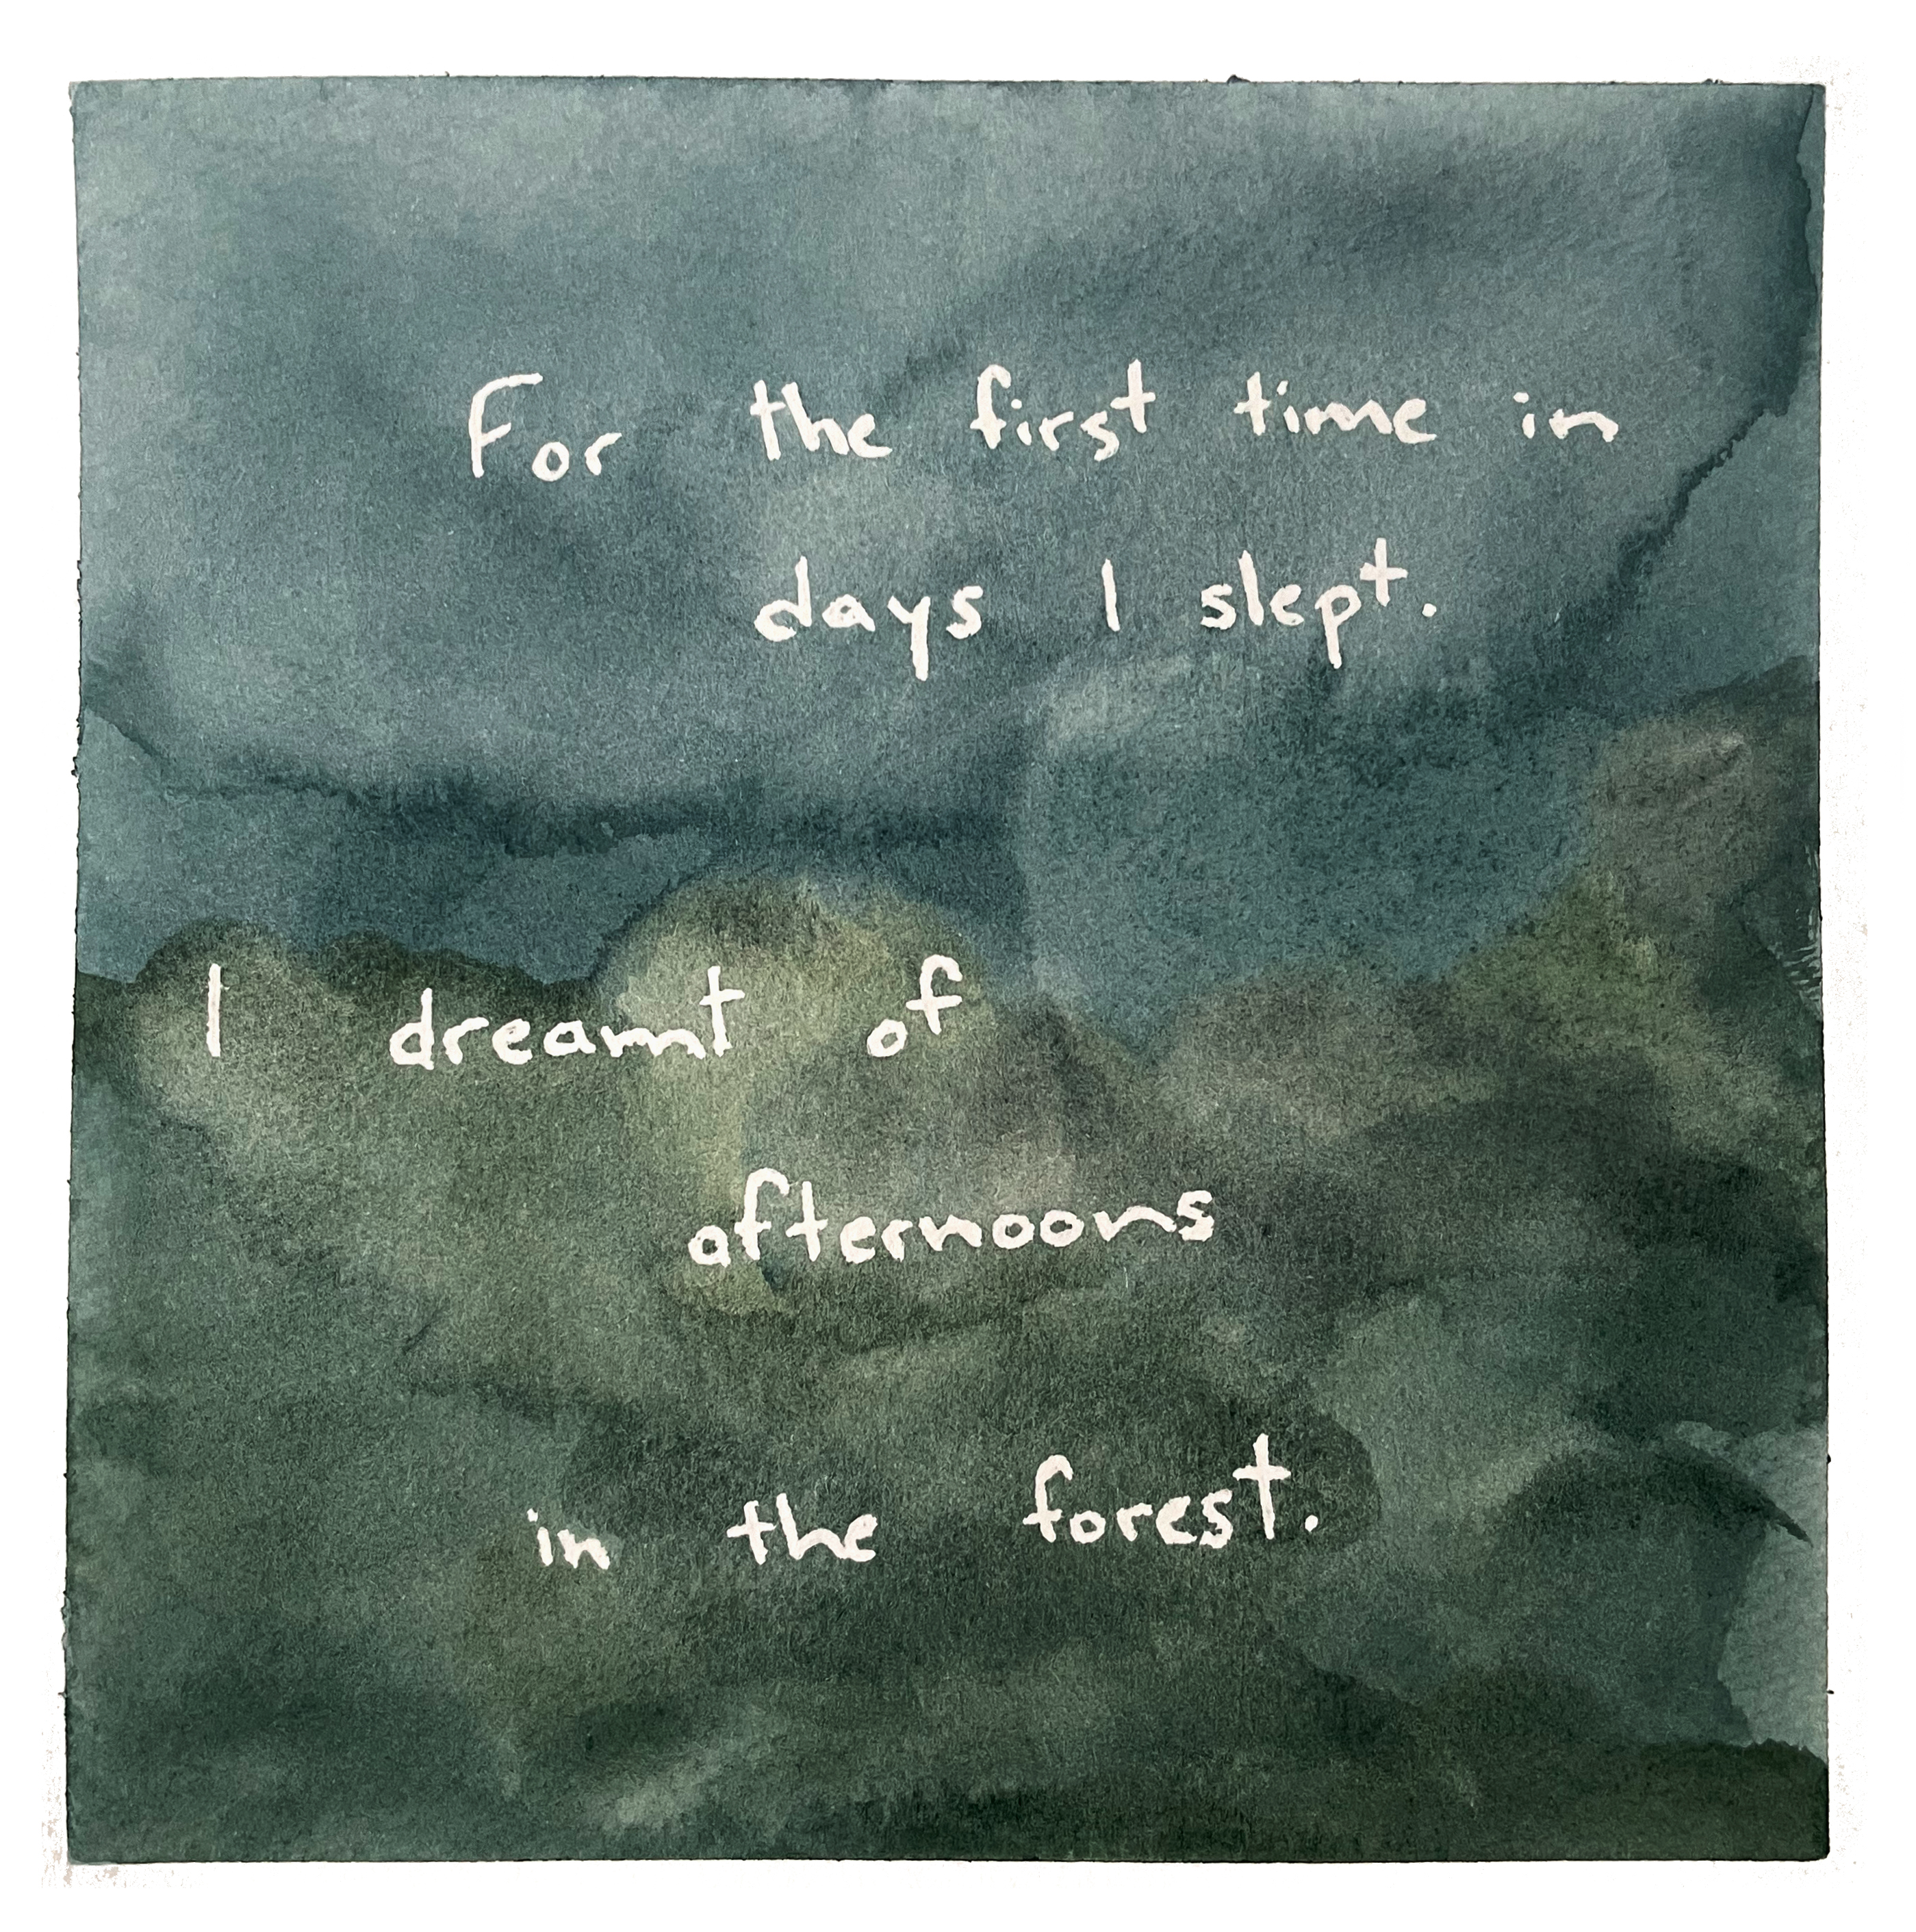 For the first time in
days I slept.
I dreamt of
afternoons
in the forest.